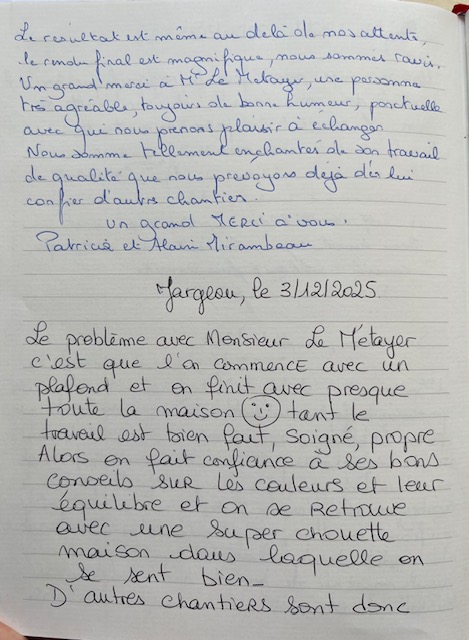 Le résultat est même au delà de nos attente,
le rendu final est magnifique, nous sommes ravis.
Un grand merci à Mr Le Metayer, une personne
très agréable, toujours de bonne humeur, ponctuelle
avec qui nous prenons plaisir à echanger
Nous somme tellement enchantés de son travail
de qualité que nous prevoyons dejà dés lui
confier d'autres chantier.
un grand MERCI à vous.
Patricia et Alain Mirambeau
Jargeau, le 3/12/2025
Le problème avec Monsieur Le Métayer
c'est que l'on commence avec un
plafond et on finit avec presque
toute la maison tant le
travail est bien fait, soigné, propre
Alors on fait confiance à ses bons
conseils sur les couleurs et leur
équilibre et on se retrouve
avec une super chouette
maison dans laquelle on
se sent bien_
D'autres chantiers sont donc